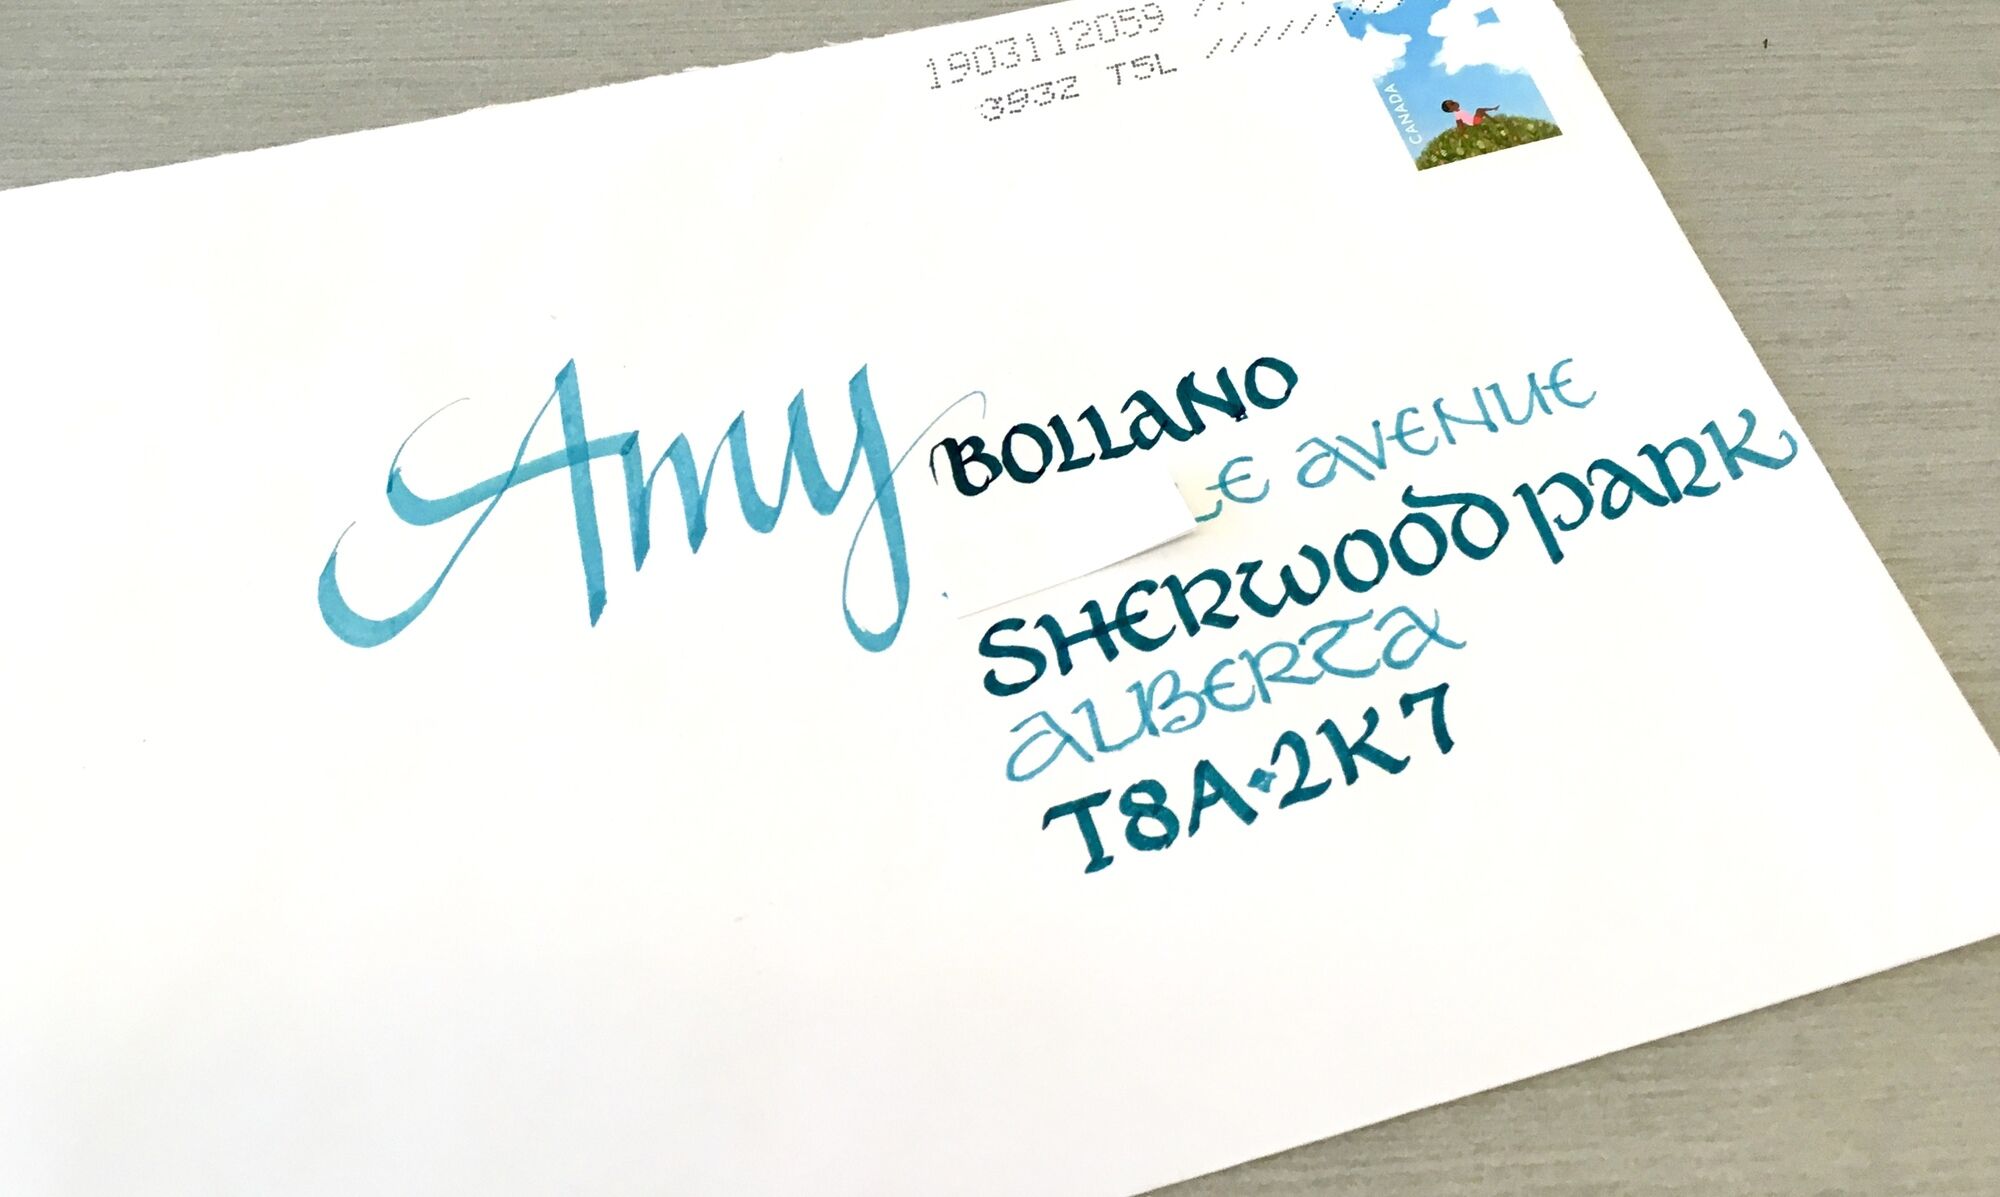 1903112059
3932 T5L
CANADA
Amy BOLLANO
E AVENUE
SHERWOOD PARK
ALBERTA
T8A·2K7